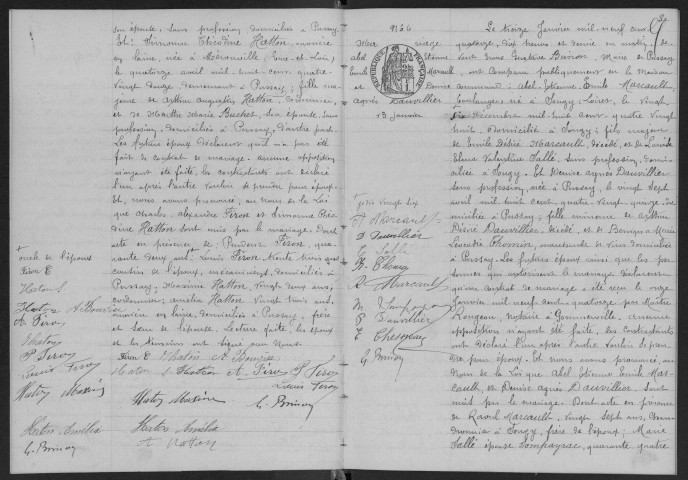 son épouse, sans profession, domiciliés à Pussay.
Et : Simonne Théodine Hatton, ouvrière
en laine, née à Méréouville (Eure-et-Loir)
le quatorze avril mil huit cent quatre
vingt douze, demeurant à Pussay ; fille mi-
neure de Arthur Augustin Hatton,
et de Marthe Marie Buchet, son épouse, sans
profession, domiciliés à Pussay, d'autre part.
Les futurs époux déclarent qu'il n'a pas été
fait de contrat de mariage. Aucune opposition
n'ayant été faite, les contractants ont déclaré
l'un après l'autre vouloir se prendre pour époux.
Et, nous avons prononcé, au nom de la Loi
que Charles Alexandre Féron et Simonne Théo-
dine Hatton sont unis par le mariage. Dont
acte en présence de Féron, qua-
rante deux ans ; Louis Féron, trente trois ans
cousin de l'époux, mécaniciens, domiciliés à
Pussay, Maxime Hatton, vingt deux ans,
cordonnier ; Amélia Hatton, vingt trois ans,
ouvrière en laine, domiciliés à Pussay, frère
et sœur de l'épouse. Lecture faite, les époux
et les témoins ont signé avec Nous.
+
oncle de l'épouse
Féron E
Hatton S
A Féron
Hatton
P Féron
Louis Féron
Hatton Maxime
Hatton Amélia
G. Buisson
Féron E Hatton
Hatton S Hatton A. Féron P Féron
Louis Féron
Hatton Maxime G. Buisson
Hatton Amélia
A Hatton
N° 4
Mariage
Abel Étienne
Émile Marcault
et Denise
Agnès Dauvillier
13 Janvier
RÉPUBLIQUE FRANÇAISE
9
Le treize Janvier mil neuf cent
quatorze, dix heures et demie du matin, de-
vant Nous Gustave Buisson, Maire de Pussay
ont comparu publiquement en la Maison
commune : Abel Étienne Émile Marcault,
boulanger, né à Sougy, Loiret, le vingt
six Décembre mil huit cent quatre vingt
huit, domicilié à Sougy ; fils majeur
de Émile Désiré Marcault, décédé, et de Louise
Elma Valentine Sallé, sans profession, domi-
ciliée à Sougy. Et Denise Agnès Dauvillier
sans profession, née à Pussay, le vingt sept
avril mil huit cent quatre vingt quatorze, do-
miciliée à Pussay ; fille mineure de Arthur
Désiré Dauvillier, décédé, et de Marie
Léocadie Thomin, marchande de vins, domiciliée
à Pussay. Les futurs époux ainsi que les per-
sonnes qui autorisent le mariage déclarent
qu'un contrat de mariage a été reçu le onze
Janvier mil neuf cent quatorze par Maître
Rougeau, notaire à Gommerville. Aucune
opposition n'ayant été faite, les contractants
ont déclaré l'un après l'autre vouloir se pren-
dre pour époux. Et nous avons prononcé, au
Nom de la Loi que Abel Étienne Émile Mar-
cault, et Denise Agnès Dauvillier, sont
unis par le mariage. Dont acte en présence
de Raoul Marcault, vingt sept ans,
à Sougy, frère de l'époux ; Marie
Sallé épouse Lompayrac, quarante quatre
A Marcault
D Dauvillier
Sallé
R Marcault
M. Lompayrac
P Dauvillier
G. Buisson